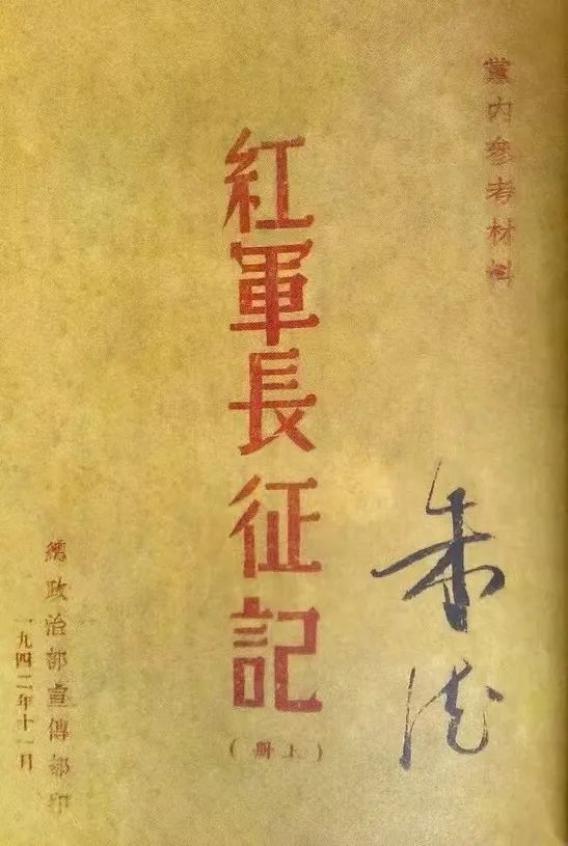 黨內參考材料
紅軍長征記
（上冊）
朱德
總政治部宣傳部印
一九四二年十一月